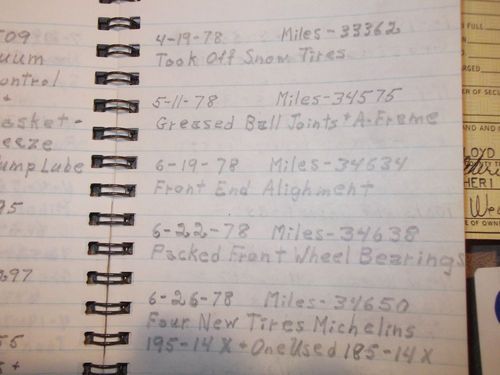 T09
uum
ontrol
+
asket-
eeze
ump Lube
95
297
55
4-19-78 Miles-33362
Took Off Snow Tires
5-11-78 Miles-34575
Greased Ball Joints + A-Frame
6-19-78 Miles-34634
Front End Alighment
6-22-78 Miles-34638
Packed Front Wheel Bearings
6-26-78 Miles-34650
Four New Tires Michelins
195-14X + One Used 185-14X
FULL
RGED
OF SECUR
AND AND
LOYD
HERI
Wes